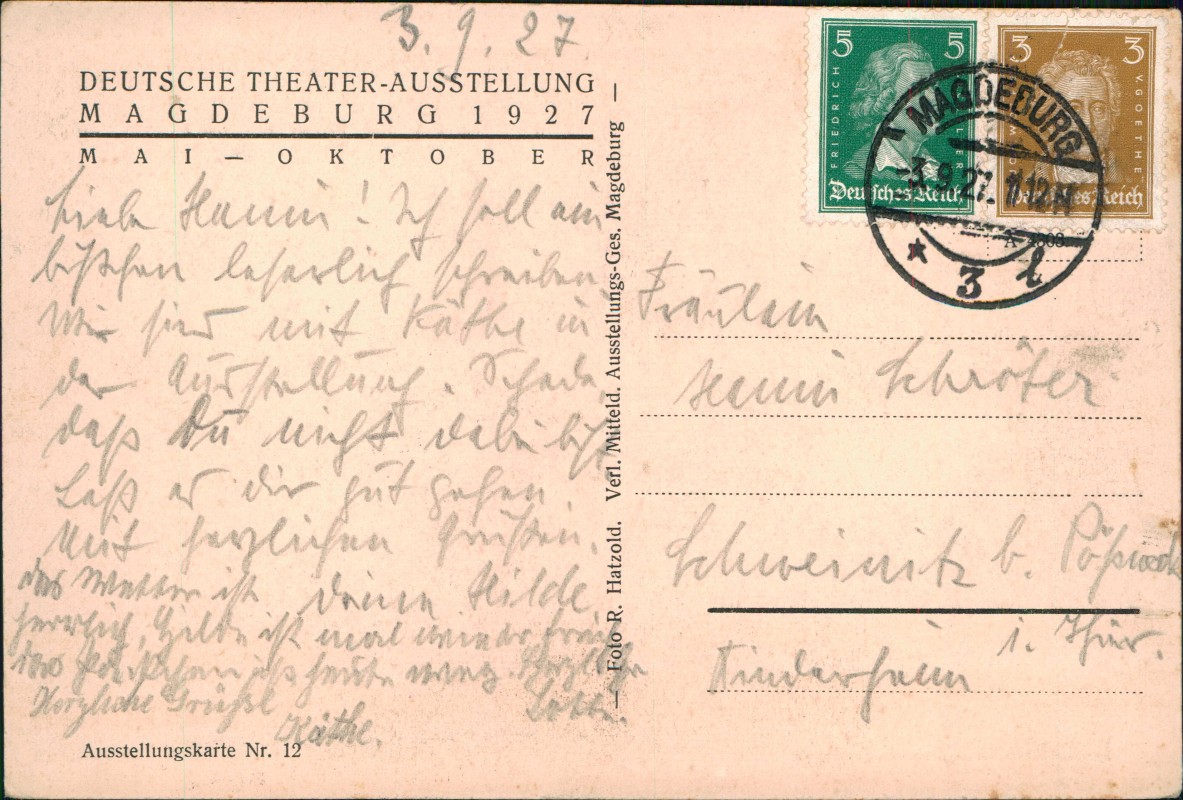 3.9.27
DEUTSCHE THEATER-AUSSTELLUNG
MAGDEBURG 1927
MAI — OKTOBER
Liebe Hanni! Ich soll ein
bißchen leserlich schreiben.
Wir sind mit Käthe in
der Ausstellung. Schade,
daß Du nicht dabei bist
Laß es dir gut gehen.
Mit herzlichen Grüßen,
deine Hilde.
das Wetter ist
herrlich, Hilde ist mal wieder
das ist heute weg. Herzliche
Herzliche Grüße
Käthe.
Ausstellungskarte Nr. 12
— Foto R. Hatzold. Verl. Mitteld. Ausstellungs-Ges. Magdeburg —
5 5
FRIEDRICH
Deutsches Reich
3 3
V. GOETHE
Deutsches Reich
MAGDEBURG
-3.9.27. 11-12 N
* 3 l
A 4303
Fräulein
Hanni Schröter
Schweinitz b. Pößneck
i. Thür.
Kinderheim